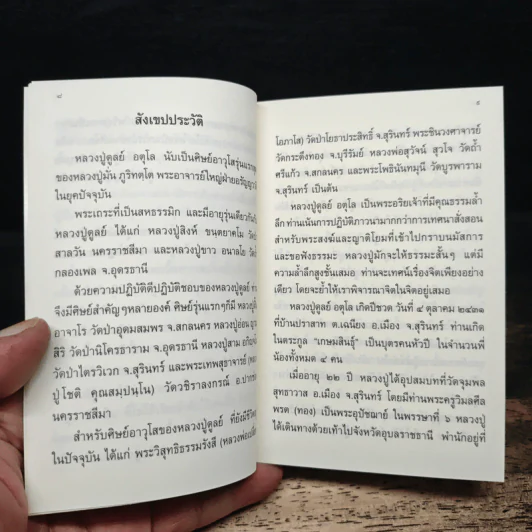 ๘
สังเขปประวัติ
หลวงปู่ดูลย์ อตุโล นับเป็นศิษย์อาวุโสรุ่นแรก
ของหลวงปู่มั่น ภูริทตฺโต พระอาจารย์ใหญ่ฝ่ายอรัญญวา
ในยุคปัจจุบัน
พระเถระที่เป็นสหธรรมิก และมีอายุรุ่นเดียวกัน
หลวงปู่ดูลย์ ได้แก่ หลวงปู่สิงห์ ขนฺตยาคโม
สาลวัน นครราชสีมา และหลวงปู่ขาว อนาลโย
กลองเพล จ.อุดรธานี
ด้วยความปฏิบัติดีปฏิบัติชอบของหลวงปู่ดูลย์
จึงมีศิษย์สำคัญๆหลายองค์ ศิษย์รุ่นแรกๆก็มี หลวงปู่
อาจาโร วัดป่าอุดมสมพร จ.สกลนคร หลวงปู่อ่อน
สิริ วัดป่านิโครธาราม จ.อุดรธานี หลวงปู่สาม
วัดป่าไตรวิเวก จ.สุรินทร์ และพระเทพสุธาจารย์
ปู่โชติ คุณสมฺปนฺโน) วัดวชิราลงกรณ์ อ.ปาก
นครราชสีมา
สำหรับศิษย์อาวุโสของหลวงปู่ดูลย์ ที่ยังมีชีวิต
ในปัจจุบัน ได้แก่ พระวิสุทธิธรรมรังสี
๙
โอภาโส) วัดป่าโยธาประสิทธิ์ จ.สุรินทร์ พระชินวงศาจารย์
วัดกระดึงทอง จ.บุรีรัมย์ หลวงพ่อสุวัจน์ สุวโจ วัดถ้ำ
ศรีแก้ว จ.สกลนคร และพระโพธินันทมุนี วัดบูรพาราม
จ.สุรินทร์ เป็นต้น
หลวงปู่ดูลย์ อตุโล เป็นพระอริยเจ้าที่มีคุณธรรมล้ำ
ลึก ท่านเน้นการปฏิบัติภาวนามากกว่าการเทศนาสั่งสอน
สำหรับพระสงฆ์และญาติโยมที่เข้าไปกราบนมัสการ
และขอฟังธรรมะ หลวงปู่มักจะให้ธรรมะสั้นๆ แต่มี
ความล้ำลึกสูงชั้นเสมอ ท่านจะเทศน์เรื่องจิตเพียงอย่าง
เดียว โดยจะย้ำให้เราพิจารณาจิตในจิตอยู่เสมอ
หลวงปู่ดูลย์ อตุโล เกิดปีชวด วันที่ ๔ ตุลาคม ๒๔๓๑
ที่บ้านปราสาท ต.เฉนียง อ.เมือง จ.สุรินทร์ ท่านเกิด
ในตระกูล "เกษมสินธุ์" เป็นบุตรคนหัวปี ในจำนวนพี่
น้องทั้งหมด ๕ คน
เมื่ออายุ ๒๒ ปี หลวงปู่ได้อุปสมบทที่วัดจุมพล
สุทธาวาส อ.เมือง จ.สุรินทร์ โดยมีท่านพระครูวิมลศีล
พรต (ทอง) เป็นพระอุปัชฌาย์ ในพรรษาที่ ๖ หลวงปู่
ได้เดินทางด้วยเท้าไปจังหวัดอุบลราชธานี พำนักอยู่ที่